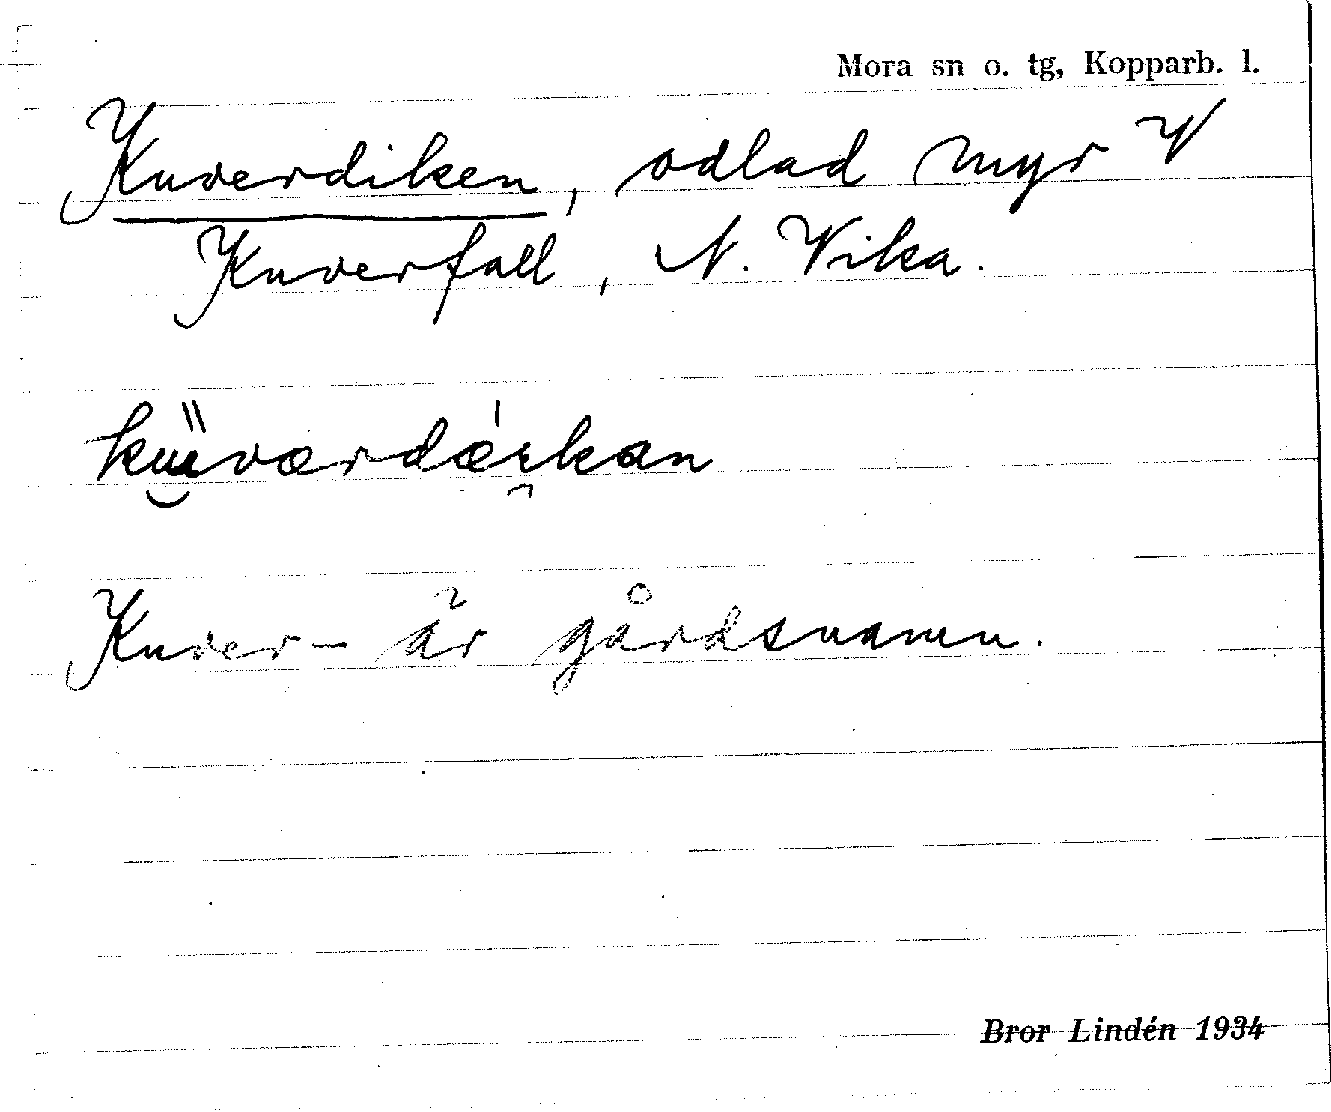 Mora sn o. tg, Kopparb. l.
Kuverdiken, odlad myr V
Kuverfall, N. Vika.
Kuver- är gårdsnamn.
Bror Lindén 1934